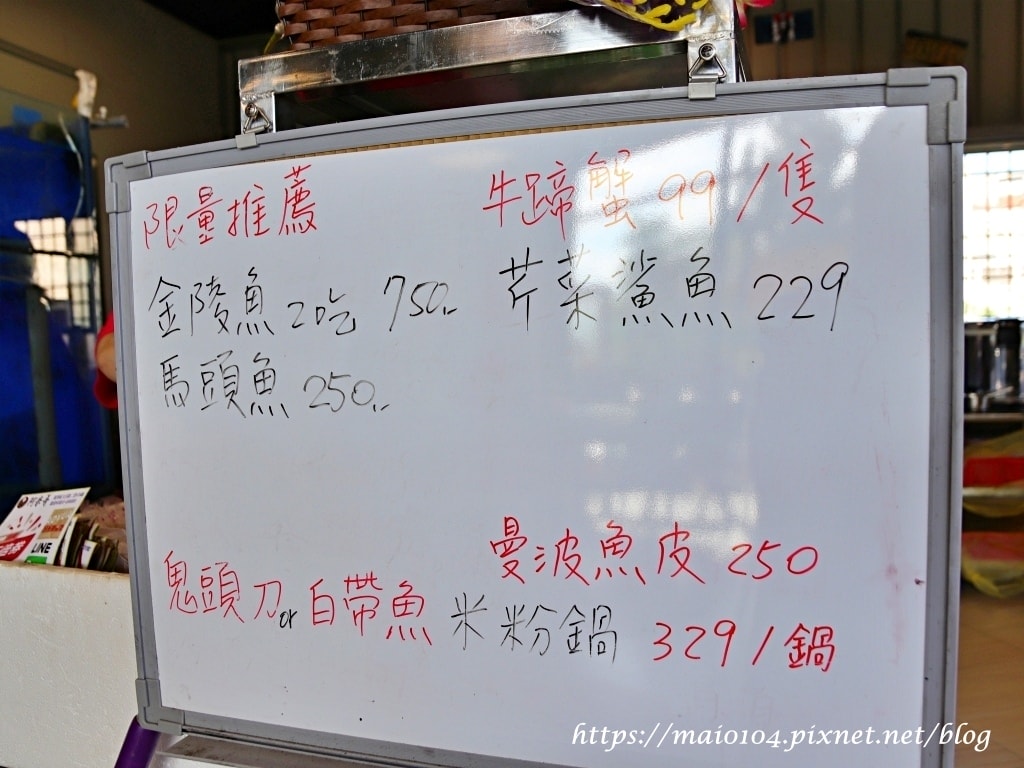 限量推薦
牛蹄蟹 99/隻
金陵魚 2吃 750.-
芹菜鯊魚 229
馬頭魚 250.-
曼波魚皮 250
鬼頭刀 or 白帶魚 米粉鍋 329/鍋
LINE
https://maio104.pixnet.net/blog